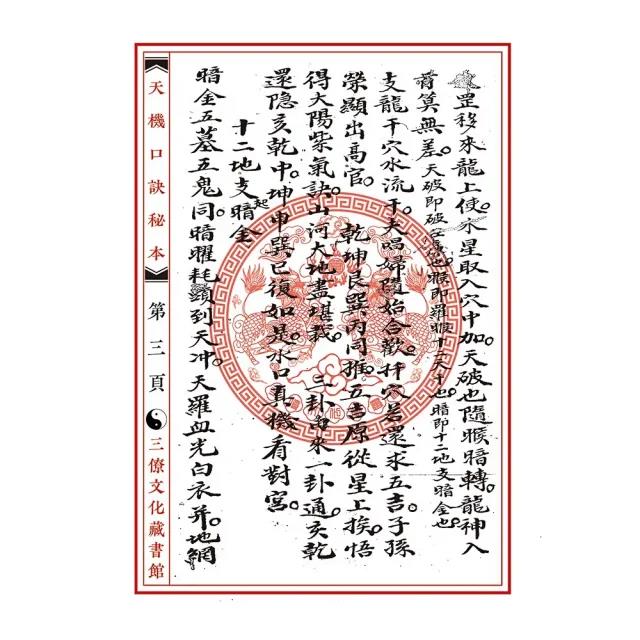 罡移來龍上使。永星取入穴中加。天破也隨猴暗轉。龍神入
算無差。天破即破也。猴即羅猴十二天干也。暗即十二地支暗金也。
支龍干穴水流干。夫唱婦隨始合歡。扦穴若還求五吉。子孫
榮顯出高官。乾坤艮巽丙同推。五吉原從星上挨。悟
得大陽紫氣訣。山河大地盡堪裁。三卦由來一卦通。亥乾
還隐亥乾中。坤申巽巳復如是。水口真機看對宮。
十二地支暗金起
暗金五墓五鬼同。暗曜耗到天冲。天羅血光白衣并。地網
天機口訣秘本
第三頁
三僚文化藏書館